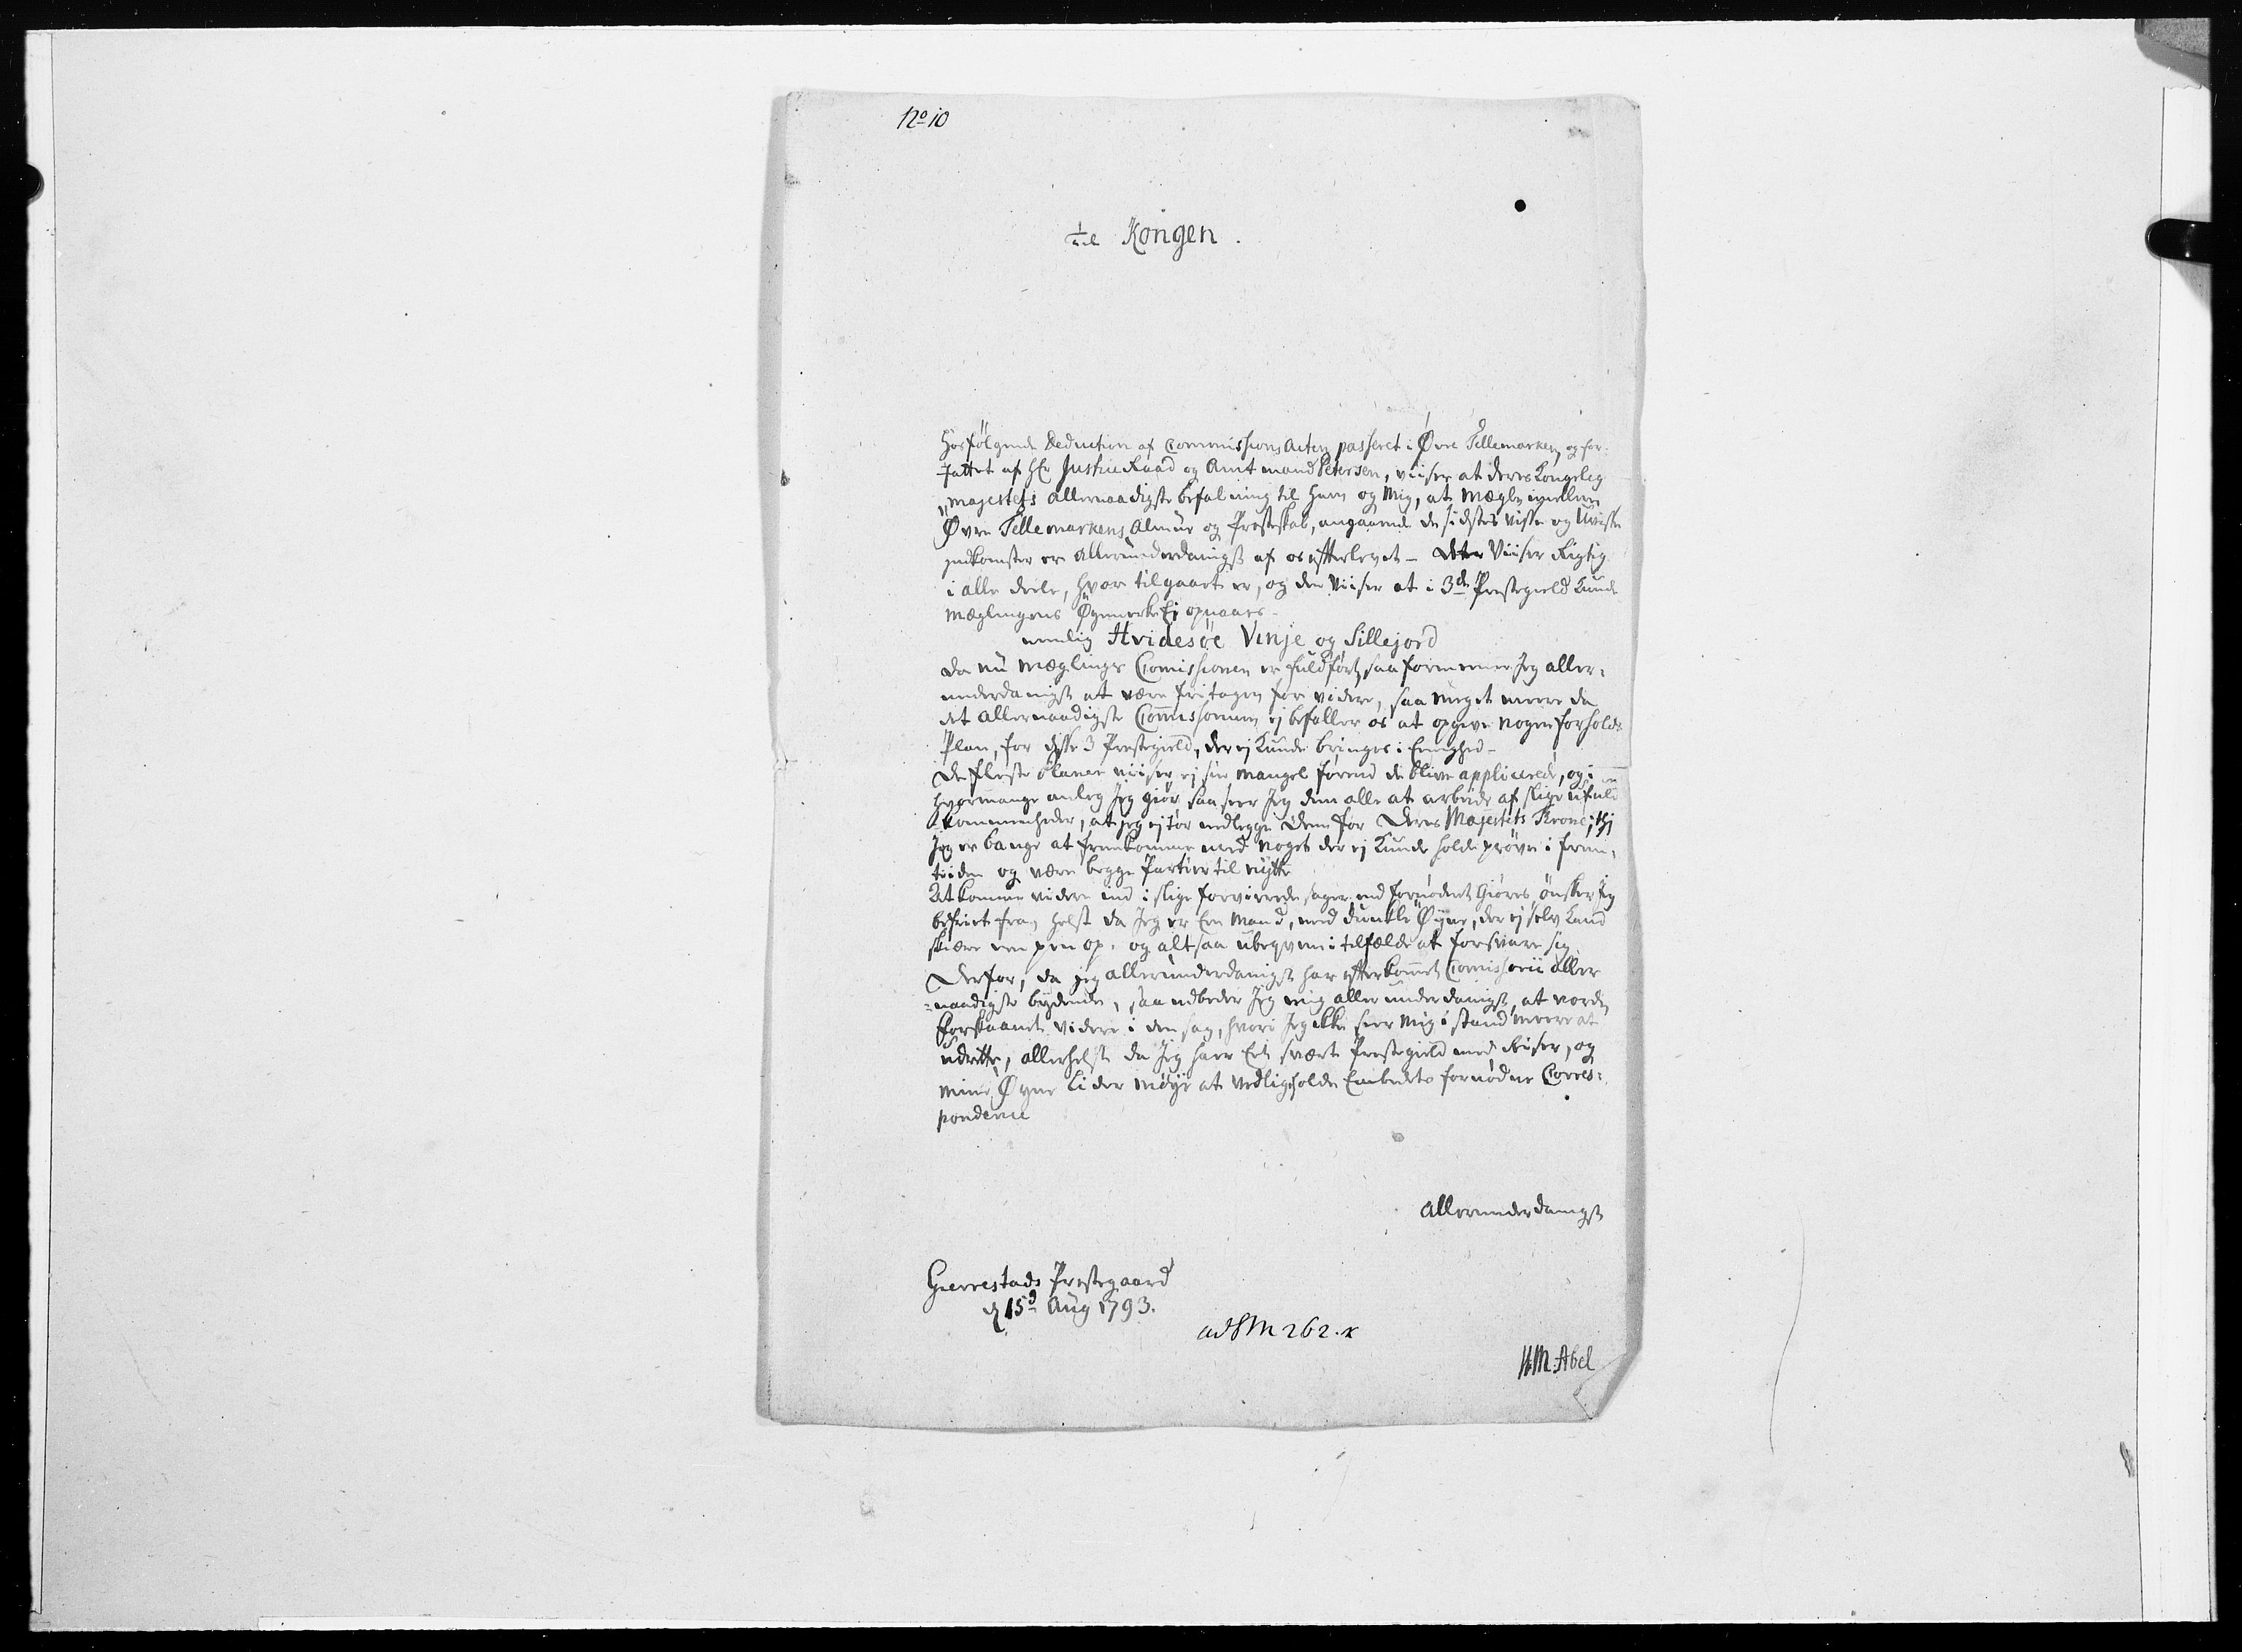 No 10
til Kongen.
Hosfölgende Deduction af Commissions Acten passeret i Øvre Tellemarken, og for-
fattet af Hr Justice Raad og Amtmand Petersen, viiser at deres Kongelig
Majestets allernaadigste befalning til ham og Mig, at Mægle imellem
Øvre Tellemarkens Almue og Presteskab, angaaende de sidstes visse og Uvisse
indkomster er allerunderdanigst af os efterlevet - Acten Viiser Rigtig
i alle deele, hvor tilgaaet er, og den Viiser at i 3de Prestegield kunde
Mæglingens Øyemerke Ej opnaaes -
nemlig Hvidesöe Vinje og Sillejord
da nu Mæglings Comissionen er fuldfört, saa formener Jeg aller-
underdanigst at være fritagen for videre, saa meget meere da
det allernaadigste Commissorium ej befaller os at opgive nogen forholds
Plan, for disse 3 Prestegield, der ej kunde bringes i Eenighed -
De fleste Planer viiser ej sin Mangel förend de blive applicerede, og i
hvormange anleg Jeg giör saa seer Jeg dem alle at arbeide af slige ufuld
kommenheder, at jeg ej tör nedlegge dem for Deres Majestets Trone; thj
Jeg er bange at fremkomme med noget der ej kunde holde pröve i frem-
tiiden og være begge Partier til nytte
At komme videre ind i slige forvirrede sager end fornödent giöres, önsker Jeg
befriet fra, helst da Jeg er Een Mand, med dunkle Øyne, der ej selv kand
skiære een pen op, og altsaa ubeqvem i tilfælde at forsvare sig
Derfor, da jeg allerunderdanigst har efterkommet Comissorii aller
naadigste bydende, saa udbeder Jeg mig allerunderdanigst, at vorde
forskaanet videre i den sag, hvori Jeg ikke seer mig i stand meere at
udrette, allerhelst da Jeg haver Eet svært Prestegield med Reiser, og
mine Øyne lider möye at vedligeholde Embedets fornödne Corres-
pondence
Allerunderdanigst
Gierrestads Prestegaard
d 15d Aug 1793.
ad SM 262.
HM: Abel